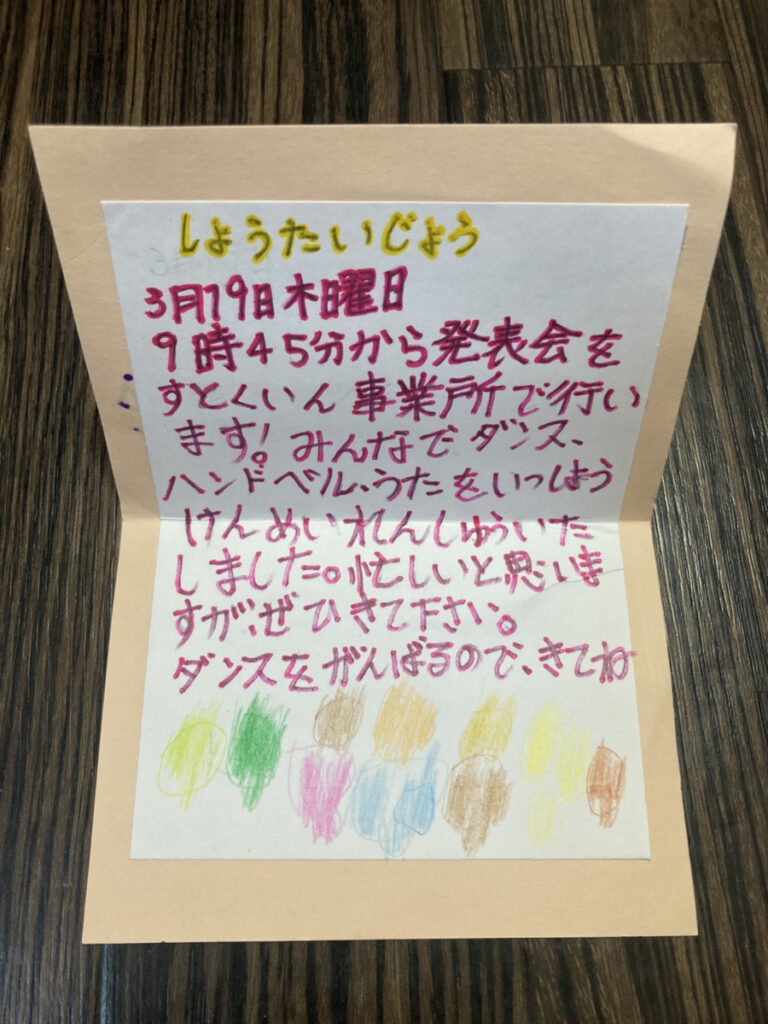 しょうたいじょう
3月19日木曜日
9時45分から発表会を
すとくいん事業所で行い
ます!みんなでダンス、
ハンドベル、うたをいっしょう
けんめいれんしゅういた
しました。忙しいと思いま
すが、ぜひきて下さい。
ダンスをがんばるので、きてね